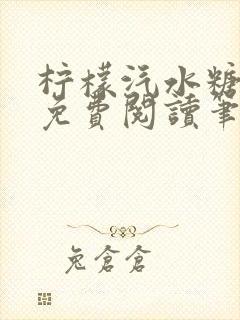 柠檬汽水糖
免費閱讀筆
兔倉倉